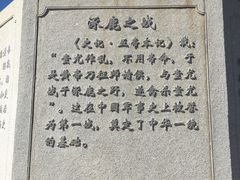 涿鹿之战
《史记·五帝本记》载：
“蚩尤作乱，不用帝命，于
是黄帝乃征师诸侯，与蚩尤
战于涿鹿之野，遂禽杀蚩尤
”。这在中国军事史上被誉
为第一战，奠定了中华一统
的基础。